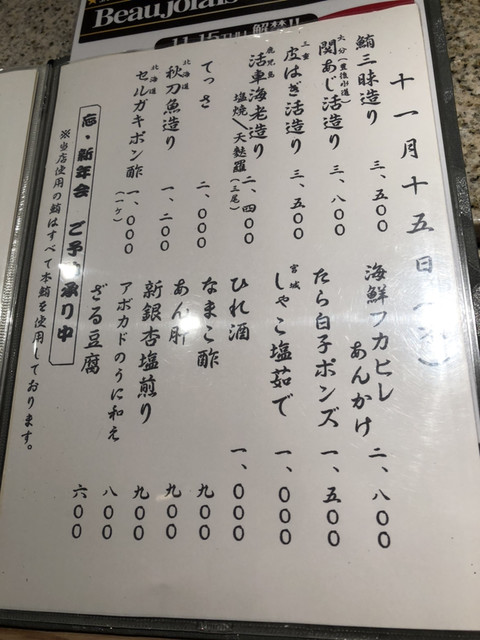 Beaujolais
11.15 THU 解禁!!
十一月十五日
鮪三昧造り 三、五〇〇
大分(豊後水道)
関あじ活造り 三、八〇〇
三重
皮はぎ活造り 三、五〇〇
鹿児島
活車海老造り
塩焼/天麩羅(三尾) 二、四〇〇
てっさ 二、〇〇〇
北海道
秋刀魚造り 一、二〇〇
北海道
セルガキポン酢(一ケ) 一、〇〇〇
海鮮フカヒレ
あんかけ 二、八〇〇
たら白子ポンズ 一、五〇〇
宮城
しゃこ塩茹で 一、〇〇〇
ひれ酒 一、〇〇〇
なまこ酢 九〇〇
あん肝 九〇〇
新銀杏塩煎り 九〇〇
アボカドのうに和え 八〇〇
ざる豆腐 六〇〇
忘・新年会 ご予 承り中
※当店使用の鮪はすべて本鮪を使用しております。